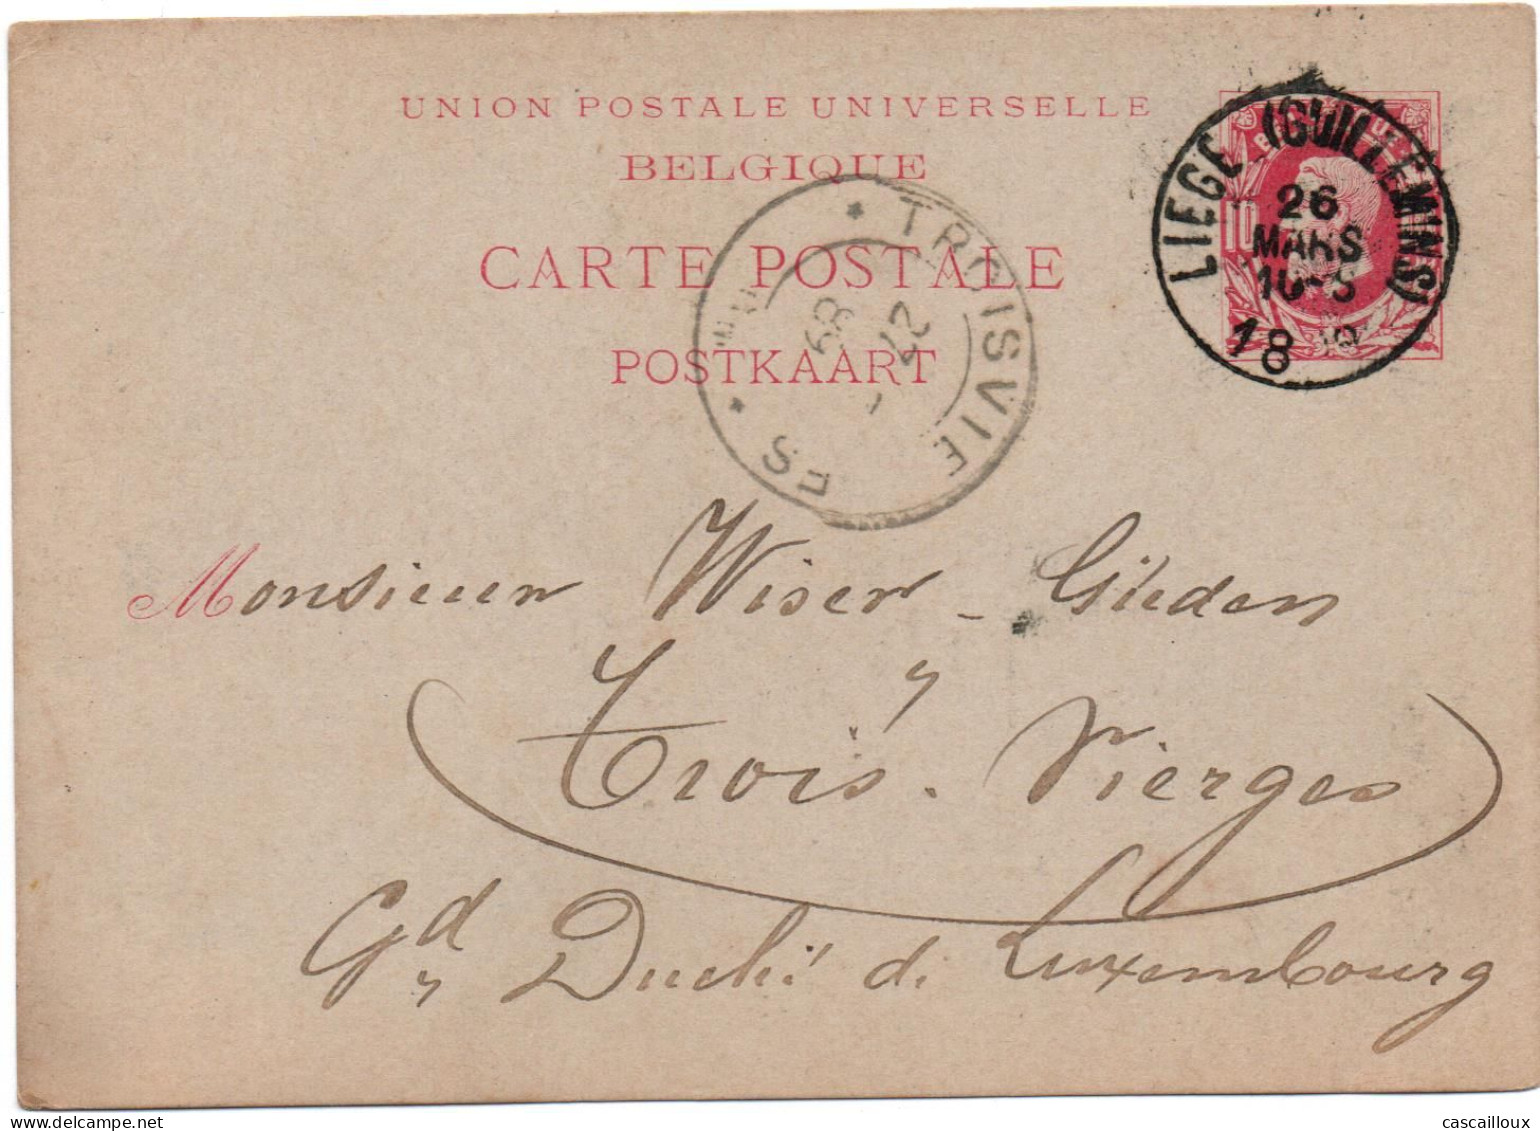 UNION POSTALE UNIVERSELLE
BELGIQUE
CARTE POSTALE
POSTKAART
LIEGE (GUILLEMINS)
26
MARS
18
* TROISVIERGES *
27
89
Monsieur Wiser-Güeden
Trois-Vierges
Gd Duché de Luxembourg
cascailloux